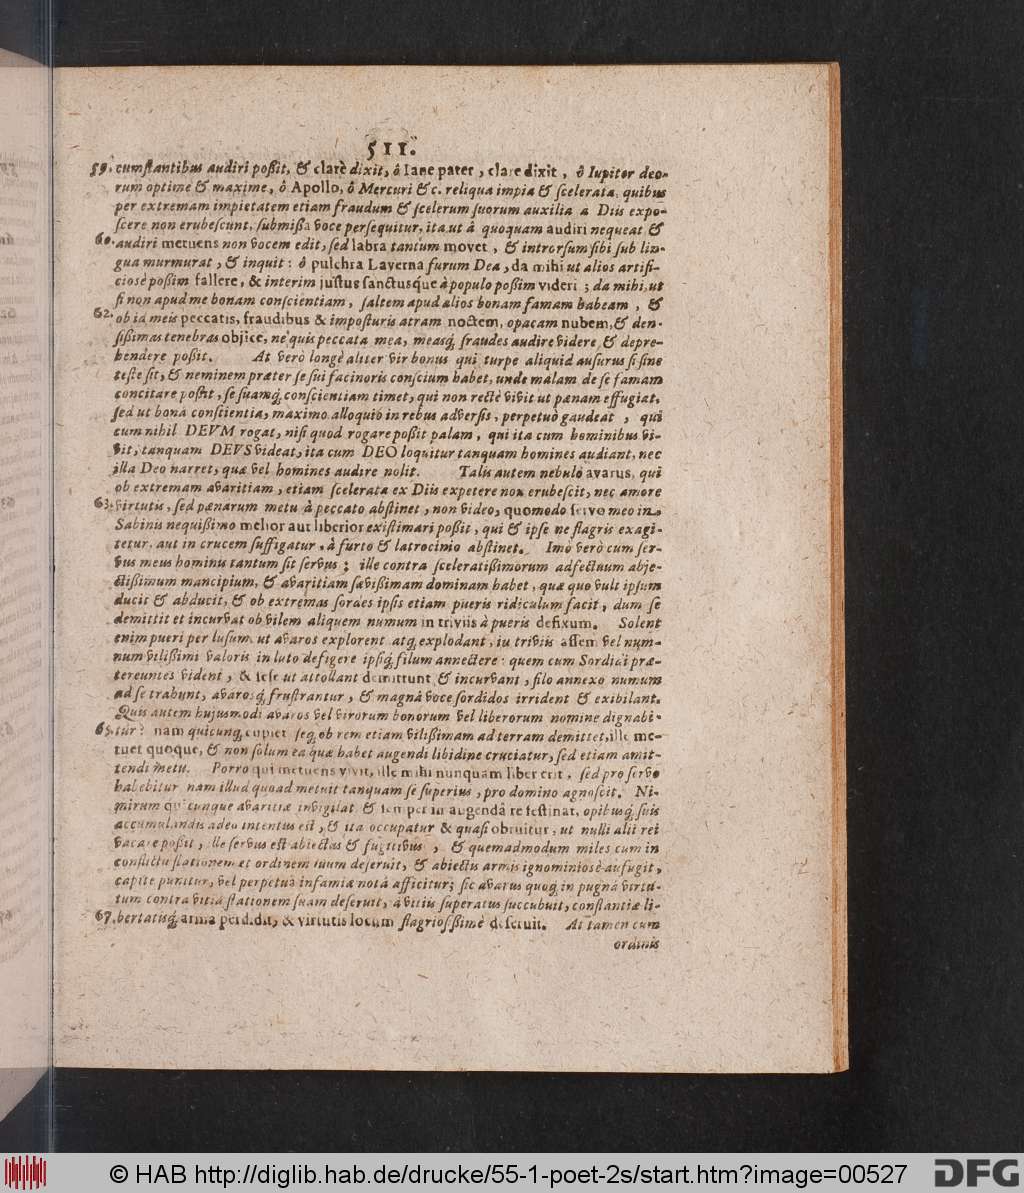 511.
59. cumſtantibus audiri poßit, & clarè dixit, ô Iane pater, clare dixit, ô Iupiter deo-
rum optime & maxime, ô Apollo, ô Mercuri &c. reliqua impia & ſcelerata, quibus
per extremam impietatem etiam fraudum & ſcelerum ſuorum auxilia a Diis expo-
ſcere non erubeſcunt, ſubmißa voce perſequitur, ita ut â quoquam audiri nequeat &
60. audiri metuens non vocem edit, ſed labra tantum movet, & introrſum ſibi ſub lin-
gua murmurat, & inquit: ô pulchra Laverna furum Dea, da mihi ut alios artifi-
cioſè poßim fallere, & interim juſtus ſanctusque à populo poßim videri; da mihi, ut
ſi non apud me bonam conſcientiam, ſaltem apud alios bonam famam habeam, &
62. ob id meis peccatis, fraudibus & impoſturis atram noctem, opacam nubem, & den-
ſißimas tenebras objice, ne quis peccata mea, measq; fraudes audire videre & depre-
hendere poßit. At verò longè aliter vir bonus qui turpe aliquid auſurus ſi ſine
teſte ſit, & neminem præter ſe ſui facinoris conſcium habet, unde malam de ſe famam
concitare poßit, ſe ſuamq; conſcientiam timet, qui non rectè vivit ut pœnam effugiat,
ſed ut bonâ conſcientia, maximo alloquio in rebus adverſis, perpetuò gaudeat, qui
cum nihil DEVM rogat, niſi quod rogare poßit palam, qui ita cum hominibus vi-
vit, tanquam DEVS videat, ita cum DEO loquitur tanquam homines audiant, nec
illa Deo narret, quæ vel homines audire nolit. Talis autem nebulo avarus, qui
ob extremam avaritiam, etiam ſcelerata ex Diis expetere non erubeſcit, nec amore
63. virtutis, ſed pœnarum metu à peccato abſtinet, non video, quomodo ſervo meo in
Sabinis nequißimo melior aut liberior exiſtimari poßit, qui & ipſe ne flagris exagi-
tetur, aut in crucem ſuffigatur, à furto & latrocinio abſtinet. Imò verò cum ſer-
vus meus hominis tantum ſit ſervus; ille contra ſceleratißimorum adfectuum abje-
ctißimum mancipium, & avaritiam ſævißimam dominam habet, quæ quo vult ipſum
ducit & abducit, & ob extremas ſordes ipſis etiam pueris ridiculum facit, dum ſe
demittit et incurvat ob vilem aliquem numum in triviis à pueris defixum. Solent
enim pueri per luſum, ut avaros explorent atq; explodant, in triviis aſſem vel num-
num vilißimi valoris in luto defigere ipſiq; filum annectere: quem cum Sordidi præ-
tereuntes vident, & ſeſe ut attollant demittunt & incurvant, filo annexo numum
ad ſe trahunt, avarosq; fruſtrantur, & magnâ voce ſordidos irrident & exibilant.
Quis autem hujusmodi avaros vel virorum bonorum vel liberorum nomine dignabi-
65. tur? nam quicunq; cupiet ſeq; ob rem etiam vilißimam ad terram demittet, ille me-
tuet quoque, & non ſolum ea quæ habet augendi libidine cruciatur, ſed etiam amit-
tendi metu. Porro qui metuens vivit, ille mihi nunquam liber erit, ſed pro ſervo
habebitur nam illud quoad metuit tanquam ſe ſuperius, pro domino agnoſcit. Ni-
mirum quicunque avaritiæ invigilat & ſemper in augendâ re feſtinat, opibusq; ſuis
accumulandis adeo intentus eſt, & ita occupatur & quaſi obruitur, ut nulli alii rei
vacare poßit, ille ſervus eſt abiectus & fugitivus, & quemadmodum miles cum in
conflictu ſtationem et ordinem ſuum deſeruit, & abiectis armis ignominiosè aufugit,
capite punitur, vel perpetuâ infamiâ notâ afficitur; ſic avarus quoq; in pugnâ virtu-
tum contra vitia ſtationem ſuam deſeruit, à vitiis ſuperatus ſuccubuit, conſtantiæ li-
67. bertatisq; arma perdidit, & virtutis locum flagrioſißimè deſeruit. At tamen cum
ordinis
© HAB http://diglib.hab.de/drucke/55-1-poet-2s/start.htm?image=00527
DFG